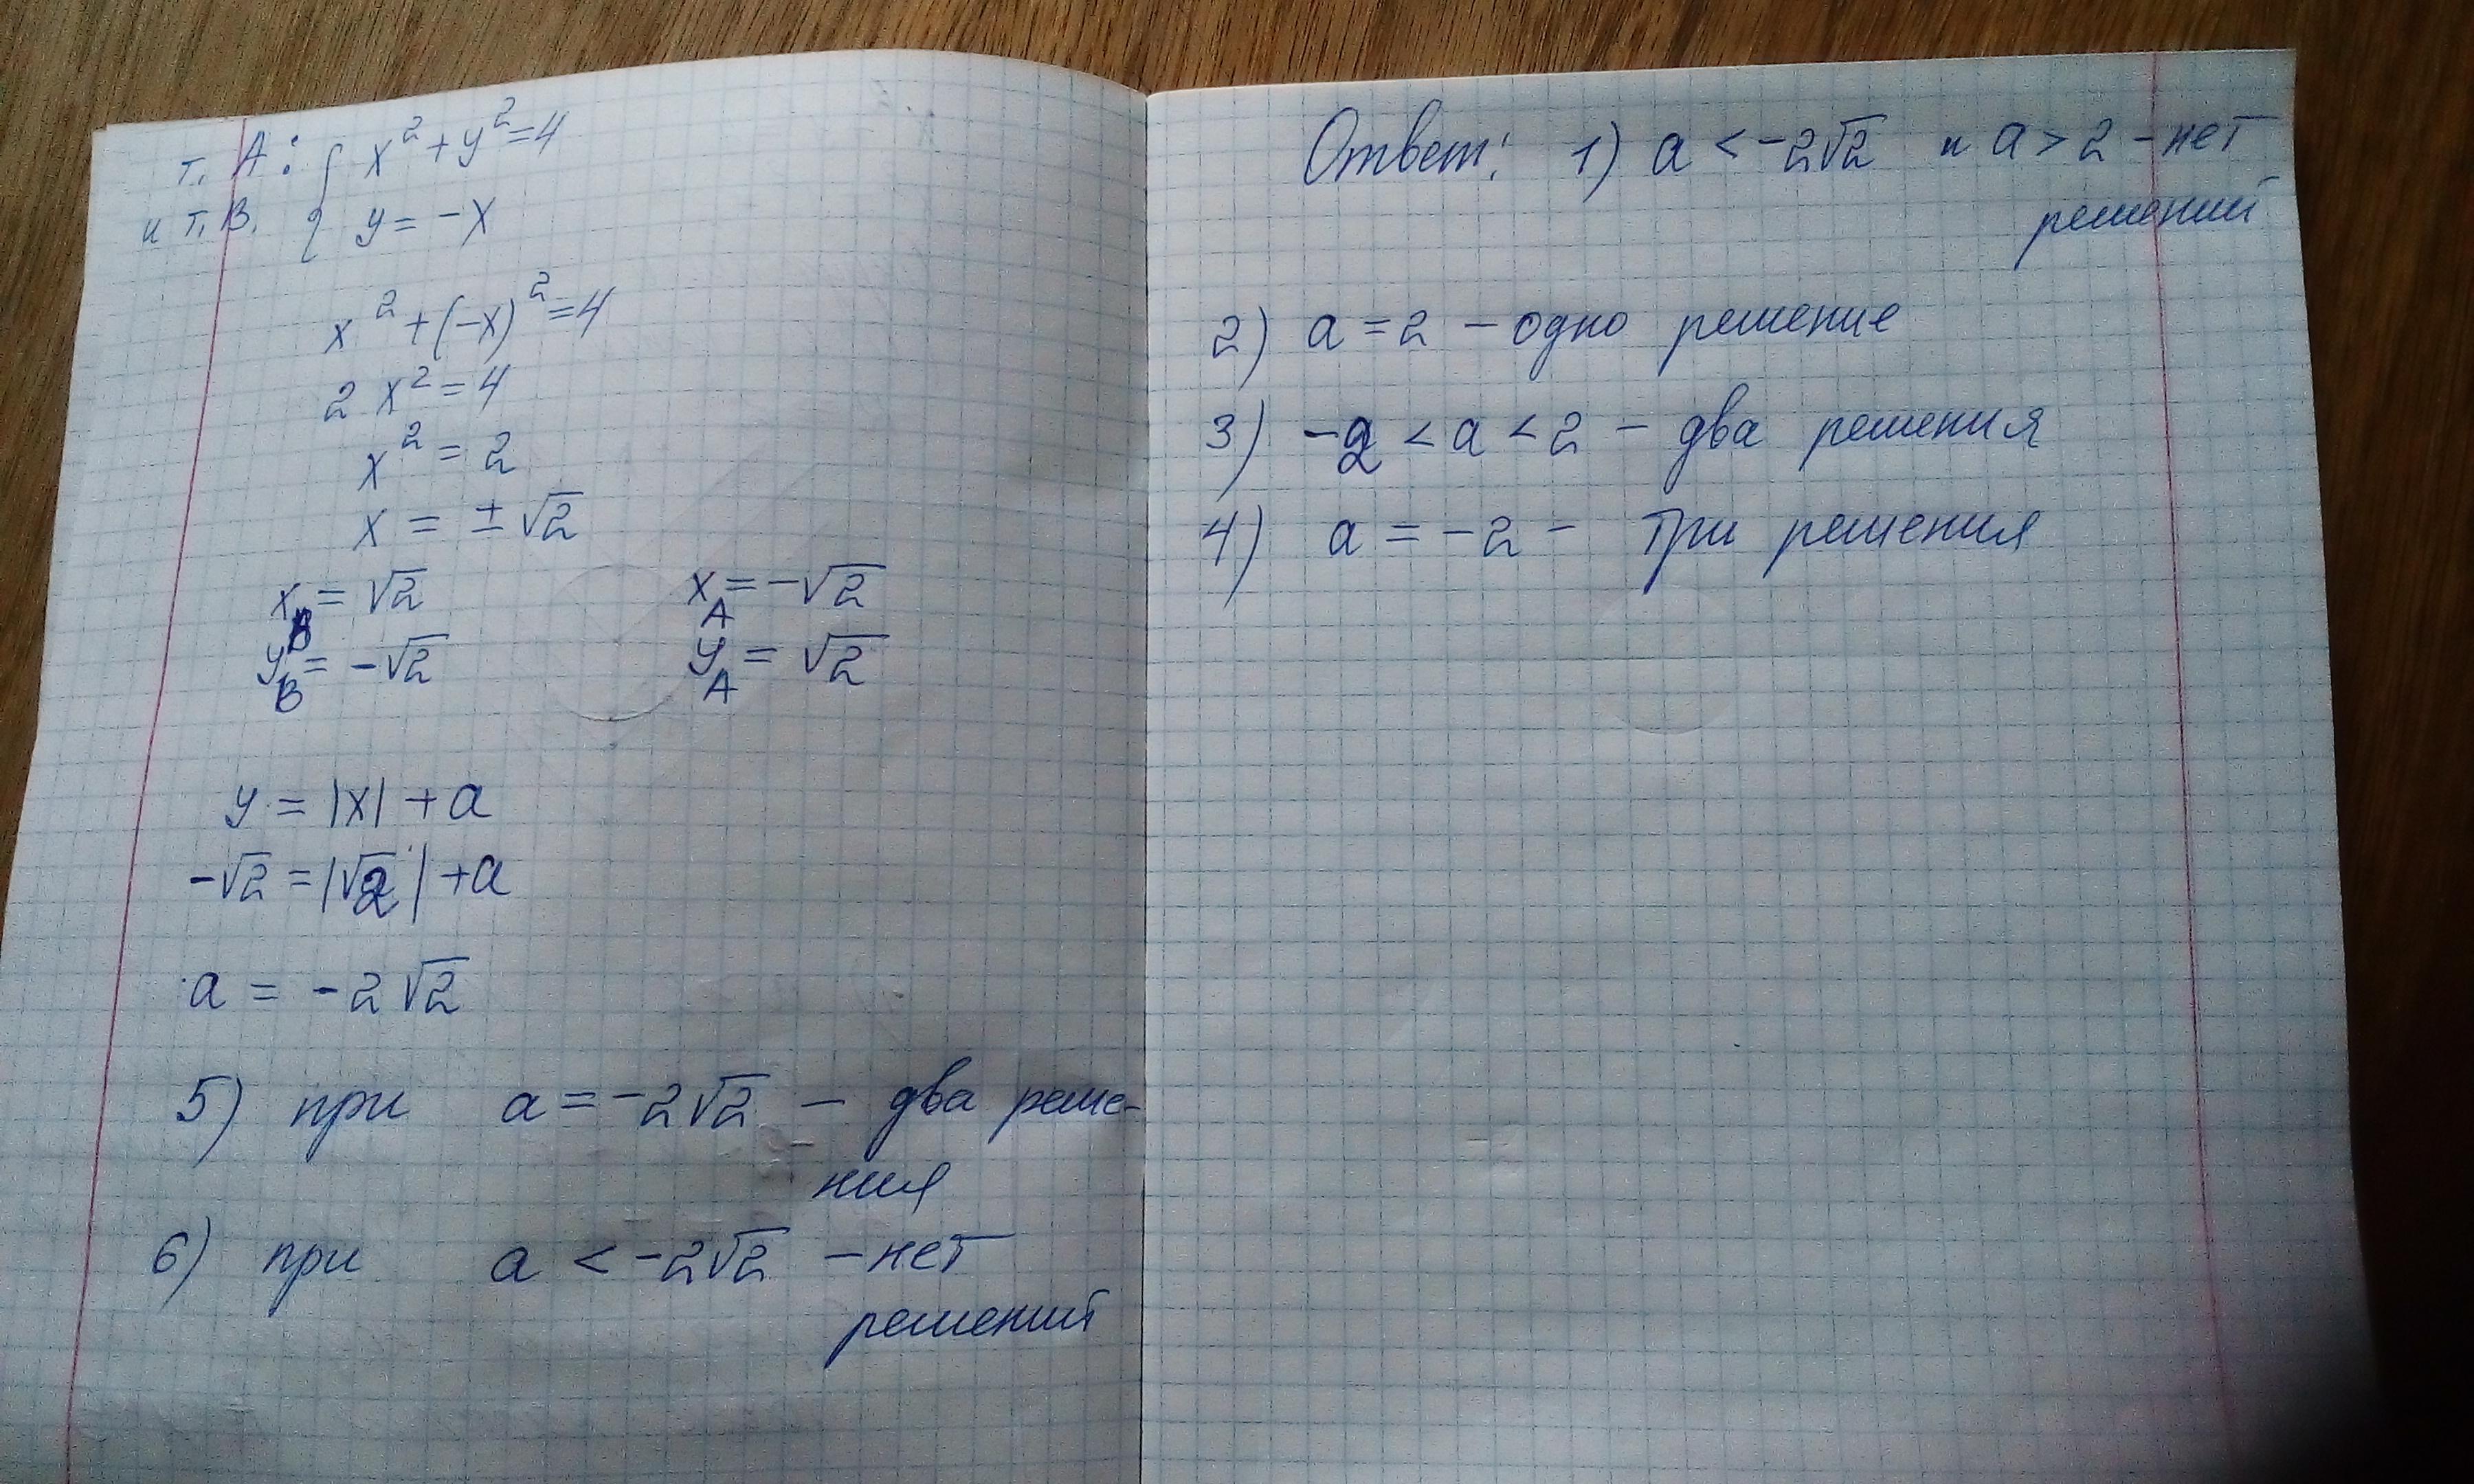 т. А: { x² + y² = 4
и т. В. { y = -x
x² + (-x)² = 4
2x² = 4
x² = 2
x = ± √2
x_B = √2 x_A = -√2
y_B = -√2 y_A = √2
y = |x| + a
-√2 = |√2| + a
a = -2√2
5) при a = -2√2 - два реше-
ния
6) при a < -2√2 - нет
решений
Ответ: 1) a < -2√2 и a > 2 - нет
решений
2) a = 2 - одно решение
3) -2 < a < 2 - два решения
4) a = -2 - три решения